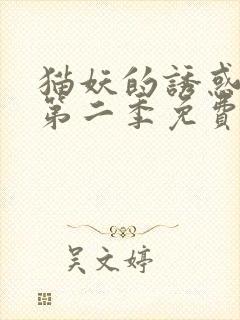 猫妖的誘惑
第二季免費
吴文婷